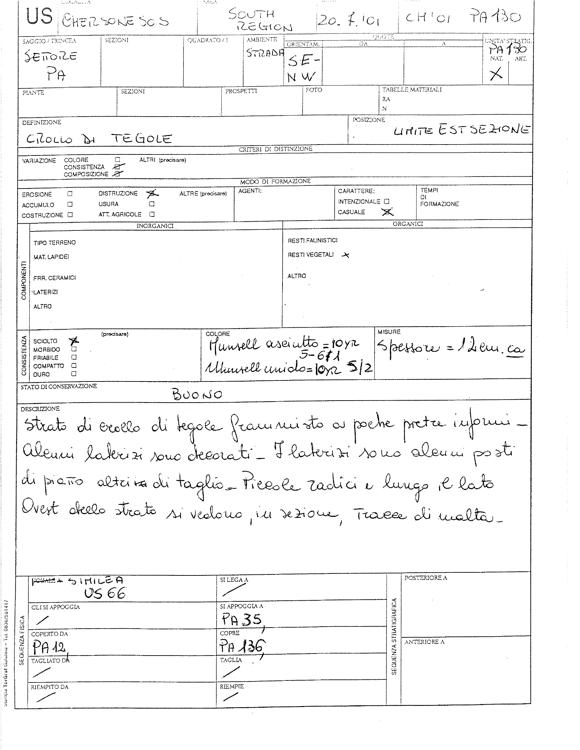 US CHERSONESOS SOUTH REGION 20.7.'01 CH'01 PA130
SAGGIO / TRINCEA SEZIONI QUADRATO/I AMBIENTE QUOTE UNITA' STRATIG.
SETTORE PA STRADA ORIENTAM. SE-NW DA A PA130
NAT. ART.
X
PIANTE SEZIONI PROSPETTI FOTO TABELLE MATERIALI
RA
N
DEFINIZIONE POSIZIONE
CROLLO DI TEGOLE LIMITE EST SEZIONE
CRITERI DI DISTINZIONE
VARIAZIONE COLORE ☐ ALTRI (precisare)
CONSISTENZA ☒
COMPOSIZIONE ☒
MODO DI FORMAZIONE
EROSIONE ☐ DISTRUZIONE ☒ ALTRE (precisare) AGENTI: CARATTERE: TEMPI DI FORMAZIONE
ACCUMULO ☐ USURA ☐ INTENZIONALE ☐
COSTRUZIONE ☐ ATT. AGRICOLE ☐ CASUALE ☒
INORGANICI ORGANICI
COMPONENTI
TIPO TERRENO RESTI FAUNISTICI
MAT. LAPIDEI RESTI VEGETALI x
FRR. CERAMICI ALTRO
LATERIZI
ALTRO
CONSISTENZA
SCIOLTO ☒ (precisare)
MORBIDO ☐
FRIABILE ☐
COMPATTO ☐
DURO ☐
COLORE
Munsell asciutto = 10yr
5-6/1
Munsell umido = 10yr 5/2
MISURE
Spessore = 12 cm. ca
STATO DI CONSERVAZIONE
BUONO
DESCRIZIONE
Strato di crollo di tegole frammisto a poche pietre informi –
Alcuni laterizi sono decorati – I laterizi sono alcuni posti
di piatto altri di taglio – Piccole radici e lungo il lato
Ovest dello strato si vedono, in sezione, tracce di malta –
SEQUENZA FISICA
SIMILE A US 66 SI LEGA A /
GLI SI APPOGGIA / SI APPOGGIA A PA 35,
COPERTO DA PA12, COPRE PA 136,
TAGLIATO DA / TAGLIA /
RIEMPITO DA / RIEMPIE /
SEQUENZA STRATIGRAFICA
POSTERIORE A
ANTERIORE A